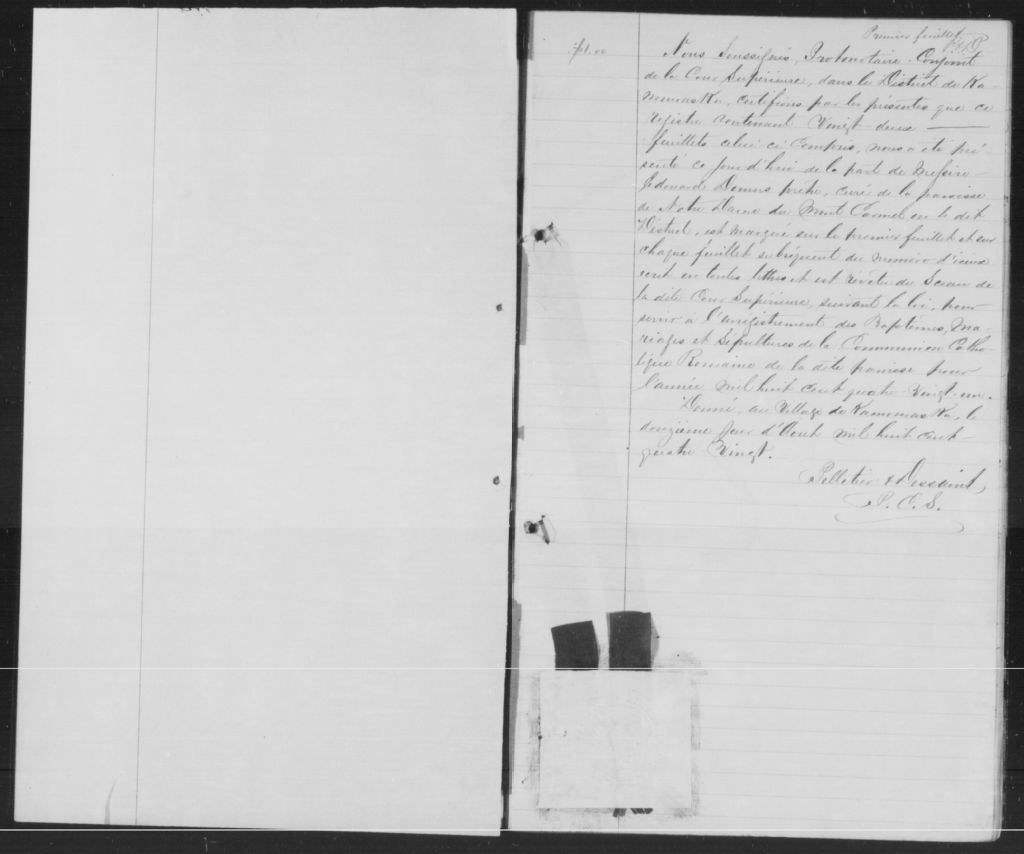 Premier feuillet
$1.00
Nous Soussignés, Protonotaire-Conjoint
de la Cour Supérieure, dans le District de Ka-
mouraska, certifions par les présentes que ce
registre contenant Vingt-deux
feuillets celui ci Compris, nous a été pré-
senté ce jour d'hui de la part de Messire
Edouard Dumas prêtre, curé de la paroisse
de Notre Dame du Mont Carmel en le dit
District, est marqué sur le premier feuillet et sur
chaque feuillet subséquent du numéro d'iceux
écrit en toutes lettres et est révêtu du Sceau de
la dite Cour Supérieure, suivant la loi, pour
servir à l'enregistrement des Baptêmes, Ma-
riages et Sépultures de la Communion Catho-
lique Romaine de la dite paroisse pour
l'année mil huit cent quatre-vingt-un.
Donné, au Village de Kamouraska, le
douzième jour d'Aout mil huit cent
quatre Vingt.
Pelletier & Dessaint
P. C. S.